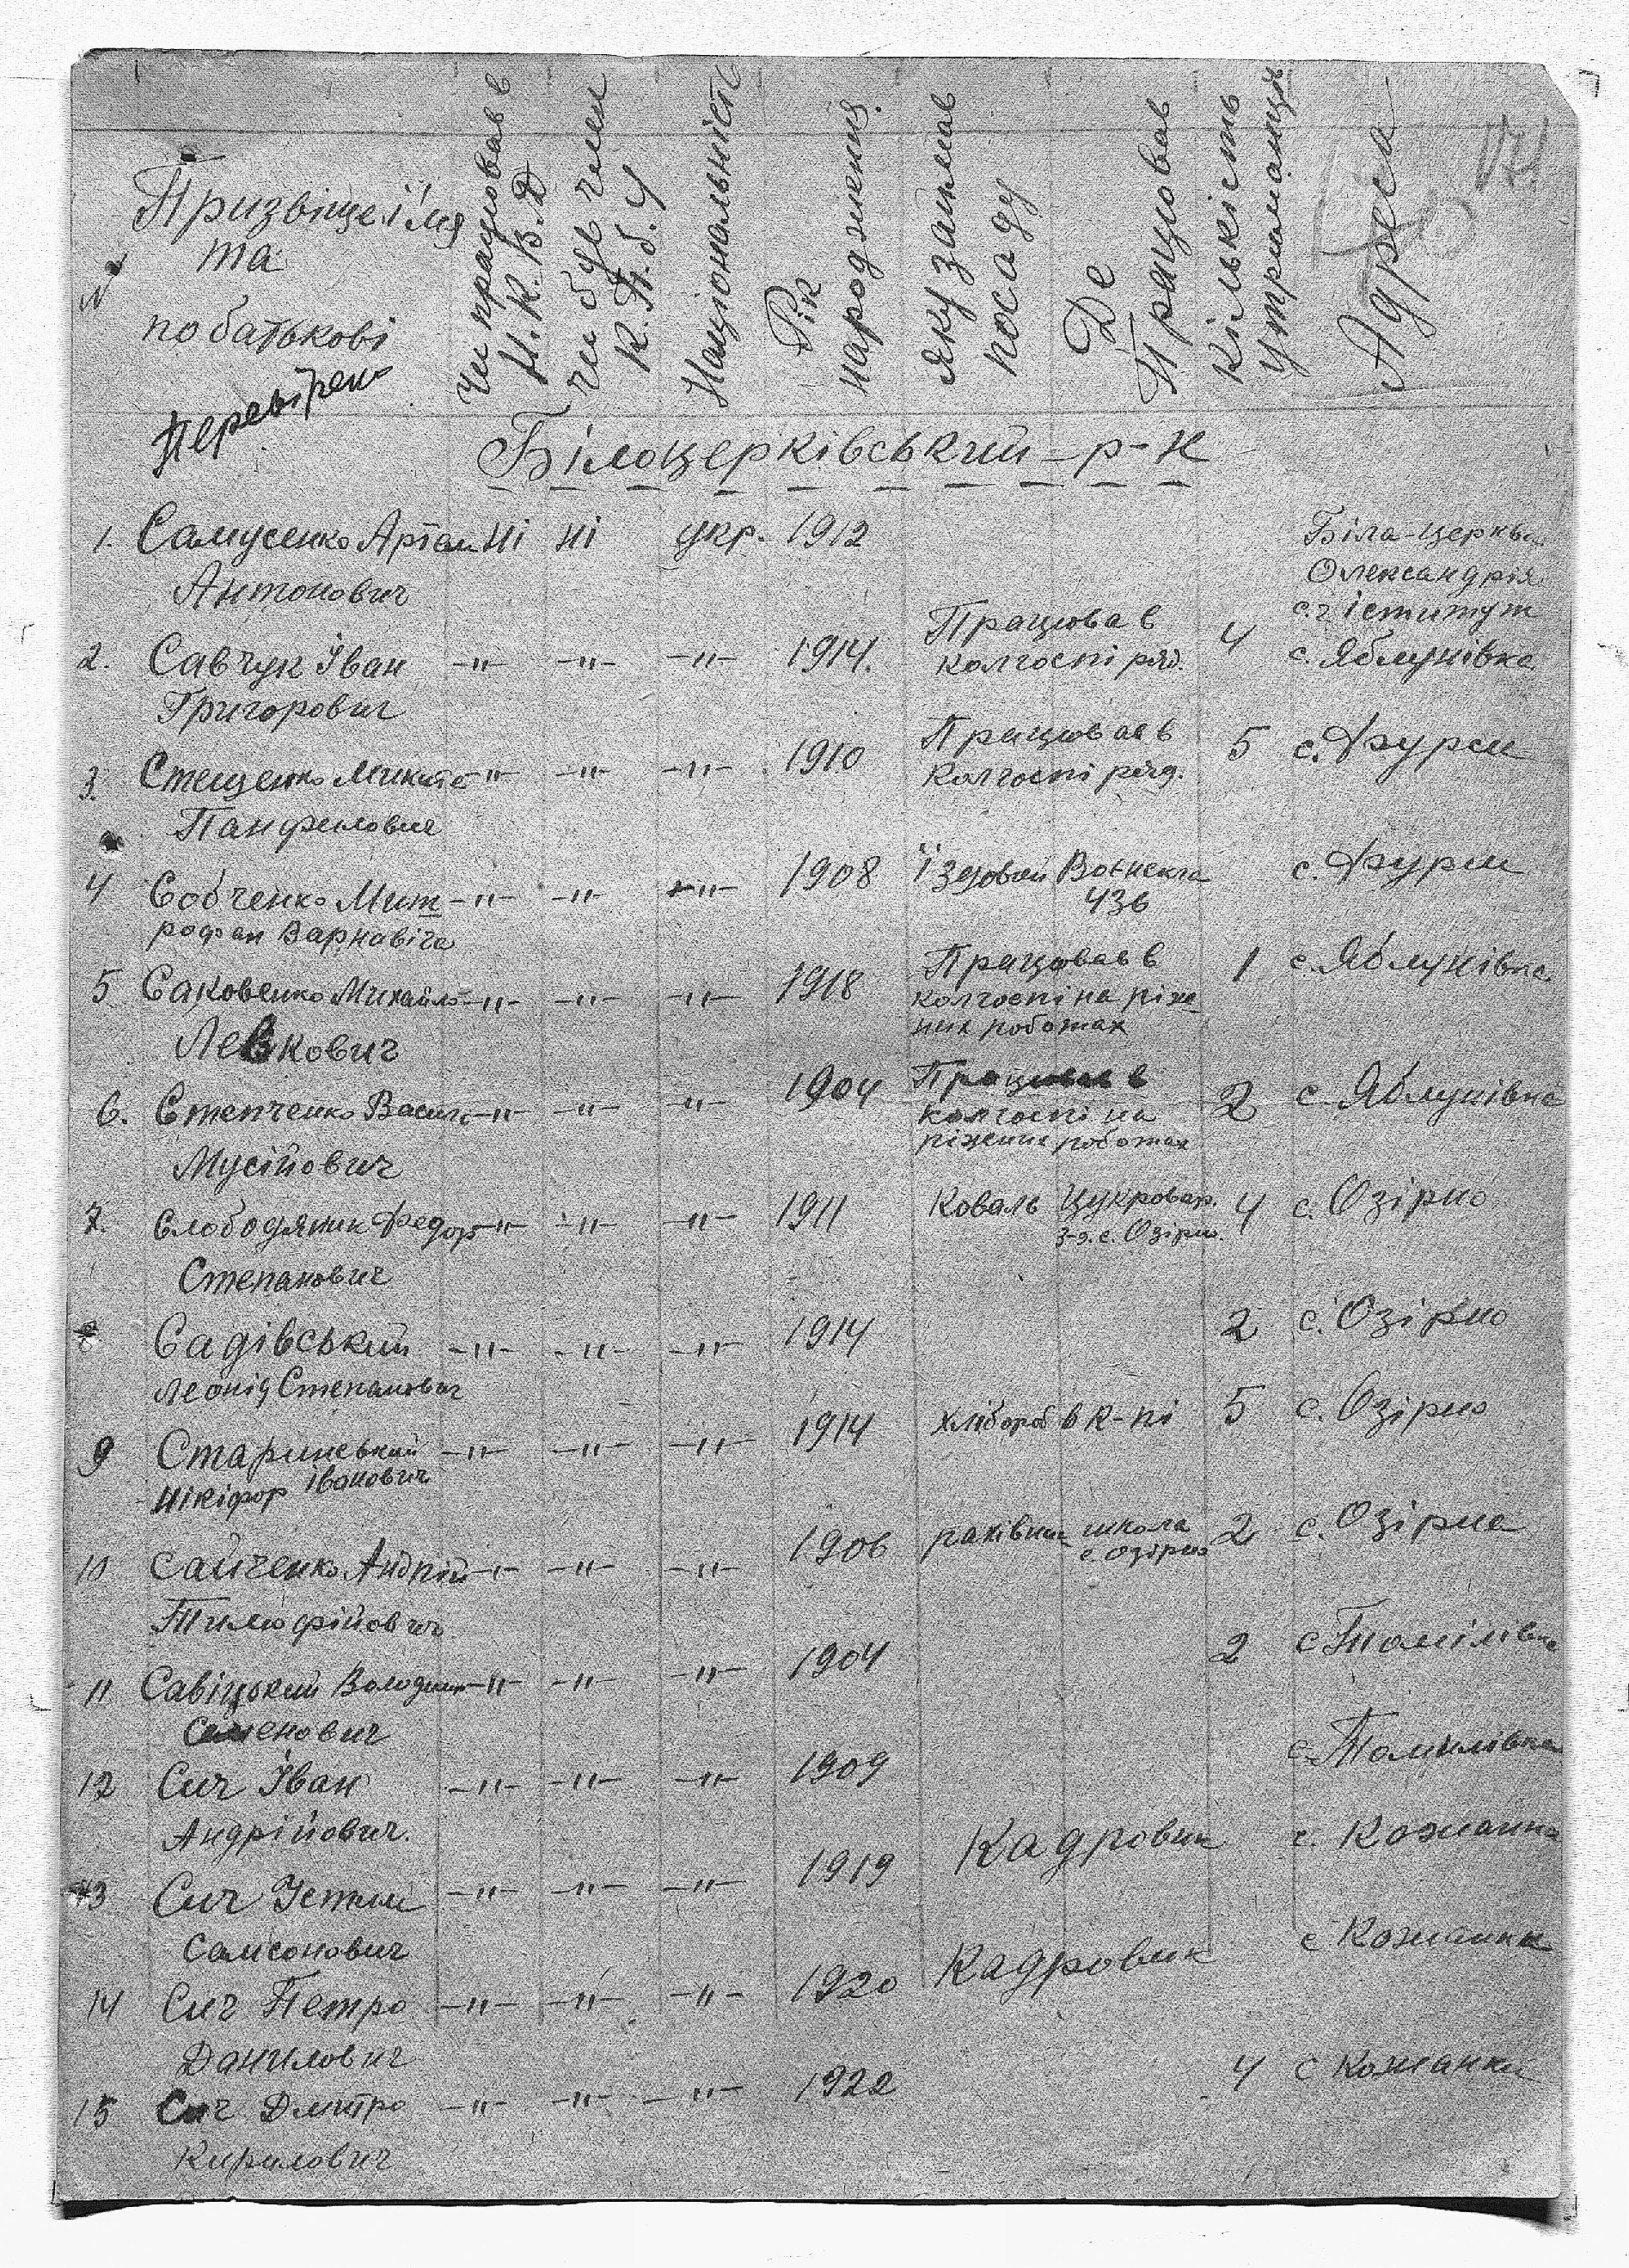 №
Призвіще і імя
та
по батькові
Чи працював в
Н.К.В.Д
чи був член
К.П.б.У
Національність
Рік
народження.
яку займав
посаду
Де
Працював
кількість
утриманців
Адреса
Перевірен
Білоцерківський р-н
1. Самусенко Артем ні ні укр. 1912 Біла-церква
Антонович Олександрія
с.г іститут
2. Савчук Іван -"- -"- -"- 1914. Працював в колгоспі ряд. 4 с. Яблунівка
Григорович
3. Стеценко Микита -"- -"- -"- 1910 Працював в колгоспі ряд. 5 с. Фурси
Панфилович
4 Собченко Мит- -"- -"- -"- 1908 їздовий Воєнекга 436 с. Фурси
рофан Варнавіча
5 Саковенко Михайло -"- -"- -"- 1918 Працював в 1 с. Яблунівка
колгоспі на ріж-
них роботах
Левкович
6. Степченко Василь -"- -"- -"- 1904 Працював в 2 с Яблунівка
колгоспі на
ріжних роботах
Мусійович
7. Слободяник Федор -"- -"- -"- 1911 Коваль Цукровар. 4 с. Озірно
з-д. с. Озірно.
Степанович
8 Садівський -"- -"- -"- 1914 2 с. Озірно
Леонід Степанович
9 Старинський -"- -"- -"- 1914 хлібороб в к-пі 5 с. Озірно
Нікіфор Іванович
10 Сайченко Андрій -"- -"- -"- 1906 рахівник школа с. Озірно 2 с. Озірна
Тимофійович
11 Савіцький Володим -"- -"- -"- 1904 2 с Томілівка
Семенович
12 Сич Іван -"- -"- -"- 1909 с. Томилівка
Андрійович.
13 Сич Устим -"- -"- -"- 1919 Кадровик с. Кожанка
Самсонович
14 Сич Петро -"- -"- -"- 1920 Кадровик с Кожанка
Данилович
15 Сич Дмитро -"- -"- -"- 1922 4 с Кожанки
Кирилович